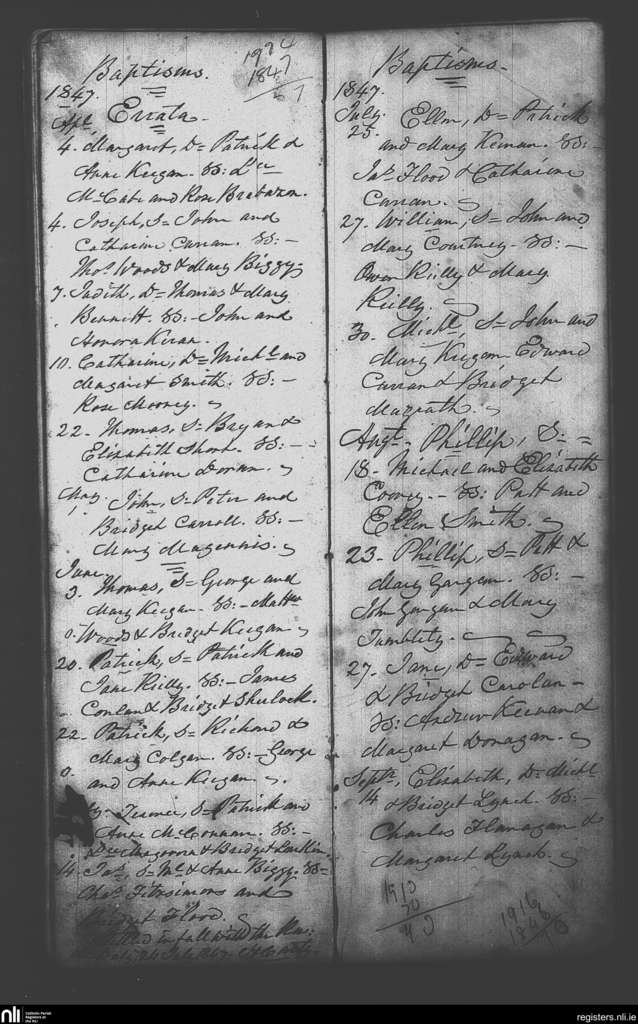 Baptisms.
1974
1847
1847.
Apl. Errata.
4. Margaret, D= Patrick &
Anne Keegan. SS: Lce
McCabe and Rose Brabazon.
4. Joseph, S= John and
Catharine Curran. SS: —
Thos. Woods & Mary Biggy.
7. Judith, D= Thomas & Mary
Bennett. SS: — John and
Honora Kiran.
10. Catharine, D= Michl. and
Margaret Smith. SS: —
Rose Mooney.
22. Thomas, S= Bryan &
Elizabeth Short. SS: —
Catharine Doran.
May
1 John, S= Peter and
Bridget Carroll. SS: —
Mary Magennis.
June.
3. Thomas, S= George and
Mary Keegan. SS: — Matthw
Woods & Bridget Keegan
20. Patrick, S= Patrick and
Jane Reilly. SS: — James
Conlan & Bridget Sherlock.
22. Patrick, S= Richard &
Mary Colgan. SS: — George
and Anne Keegan.
Terence, S= Patrick and
Anne McConnan. SS: —
& Bridget Larkin.
14. Jas. S= Ml. & Anne Biggy. SS=
Chas. Fitzsimons and
Bridget Flood.
in full with the Rev:
Baptisms.
1847.
July.
25. Ellen, D= Patrick
and Mary Keenan. SS: —
Jas. Flood & Catharine
Curran.
27. William, S= John and
Mary Courtney. SS: —
Owen Reilly & Mary
Reilly.
30. Michl, S= John and
Mary Keegan. Edward
Curran & Bridget
Magrath.
Augt. Phillip, S= =
18. Michael and Elizabeth
Cooney. — SS: Patt and
Ellen Smith.
23. Phillip, S= Patt &
Mary Gargan. SS: —
John Gargan & Mary
Tumblety.
27. Jane, D= Edward
& Bridget Carolan —
SS: Andrew Keenan &
Margaret Donagan.
Septr. Elizabeth, D= Michl
14 & Bridget Lynch. SS: —
Charles Flanagan &
Margaret Lynch.
1910
1916
1846
nli
Catholic Parish
Registers at
the NLI
registers.nli.ie